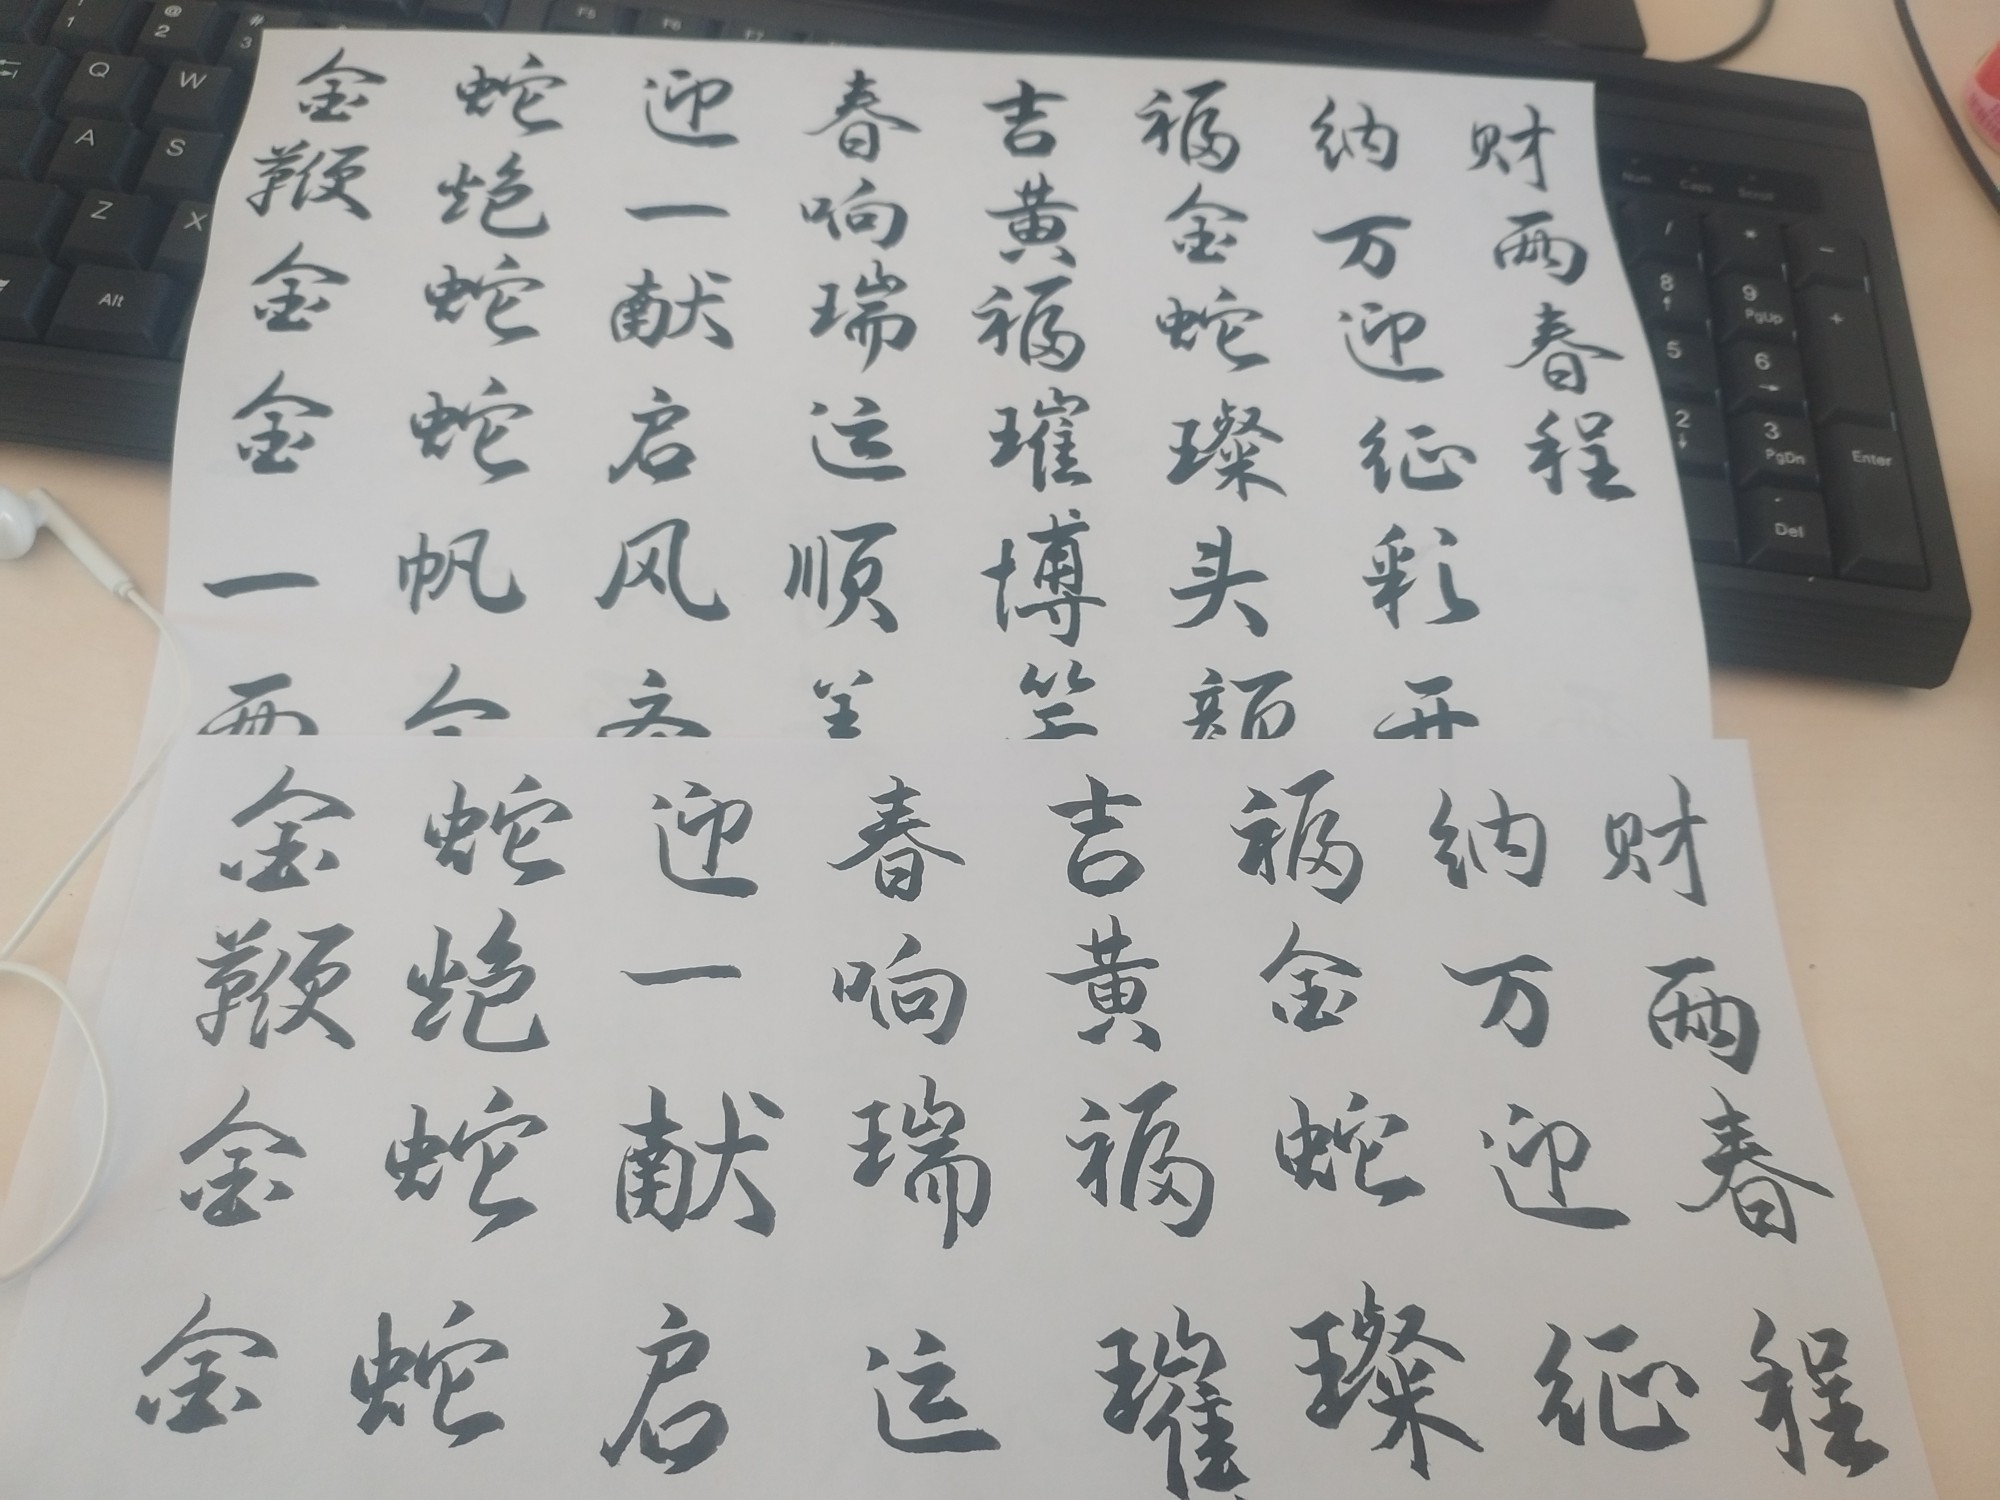 金蛇迎春吉福纳财
鞭炮一响黄金万两
金蛇献瑞福蛇迎春
金蛇启运璀璨征程
一帆风顺博头彩
金蛇迎春吉福纳财
鞭炮一响黄金万两
金蛇献瑞福蛇迎春
金蛇启运璀璨征程
! 1
@ 2
# 3
F5
F6
F7
Q
W
A
S
Z
X
Alt
Num
Caps
Scroll
/
*
-
8
9 PgUp
+
5
6
2
3 PgDn
Enter
Del